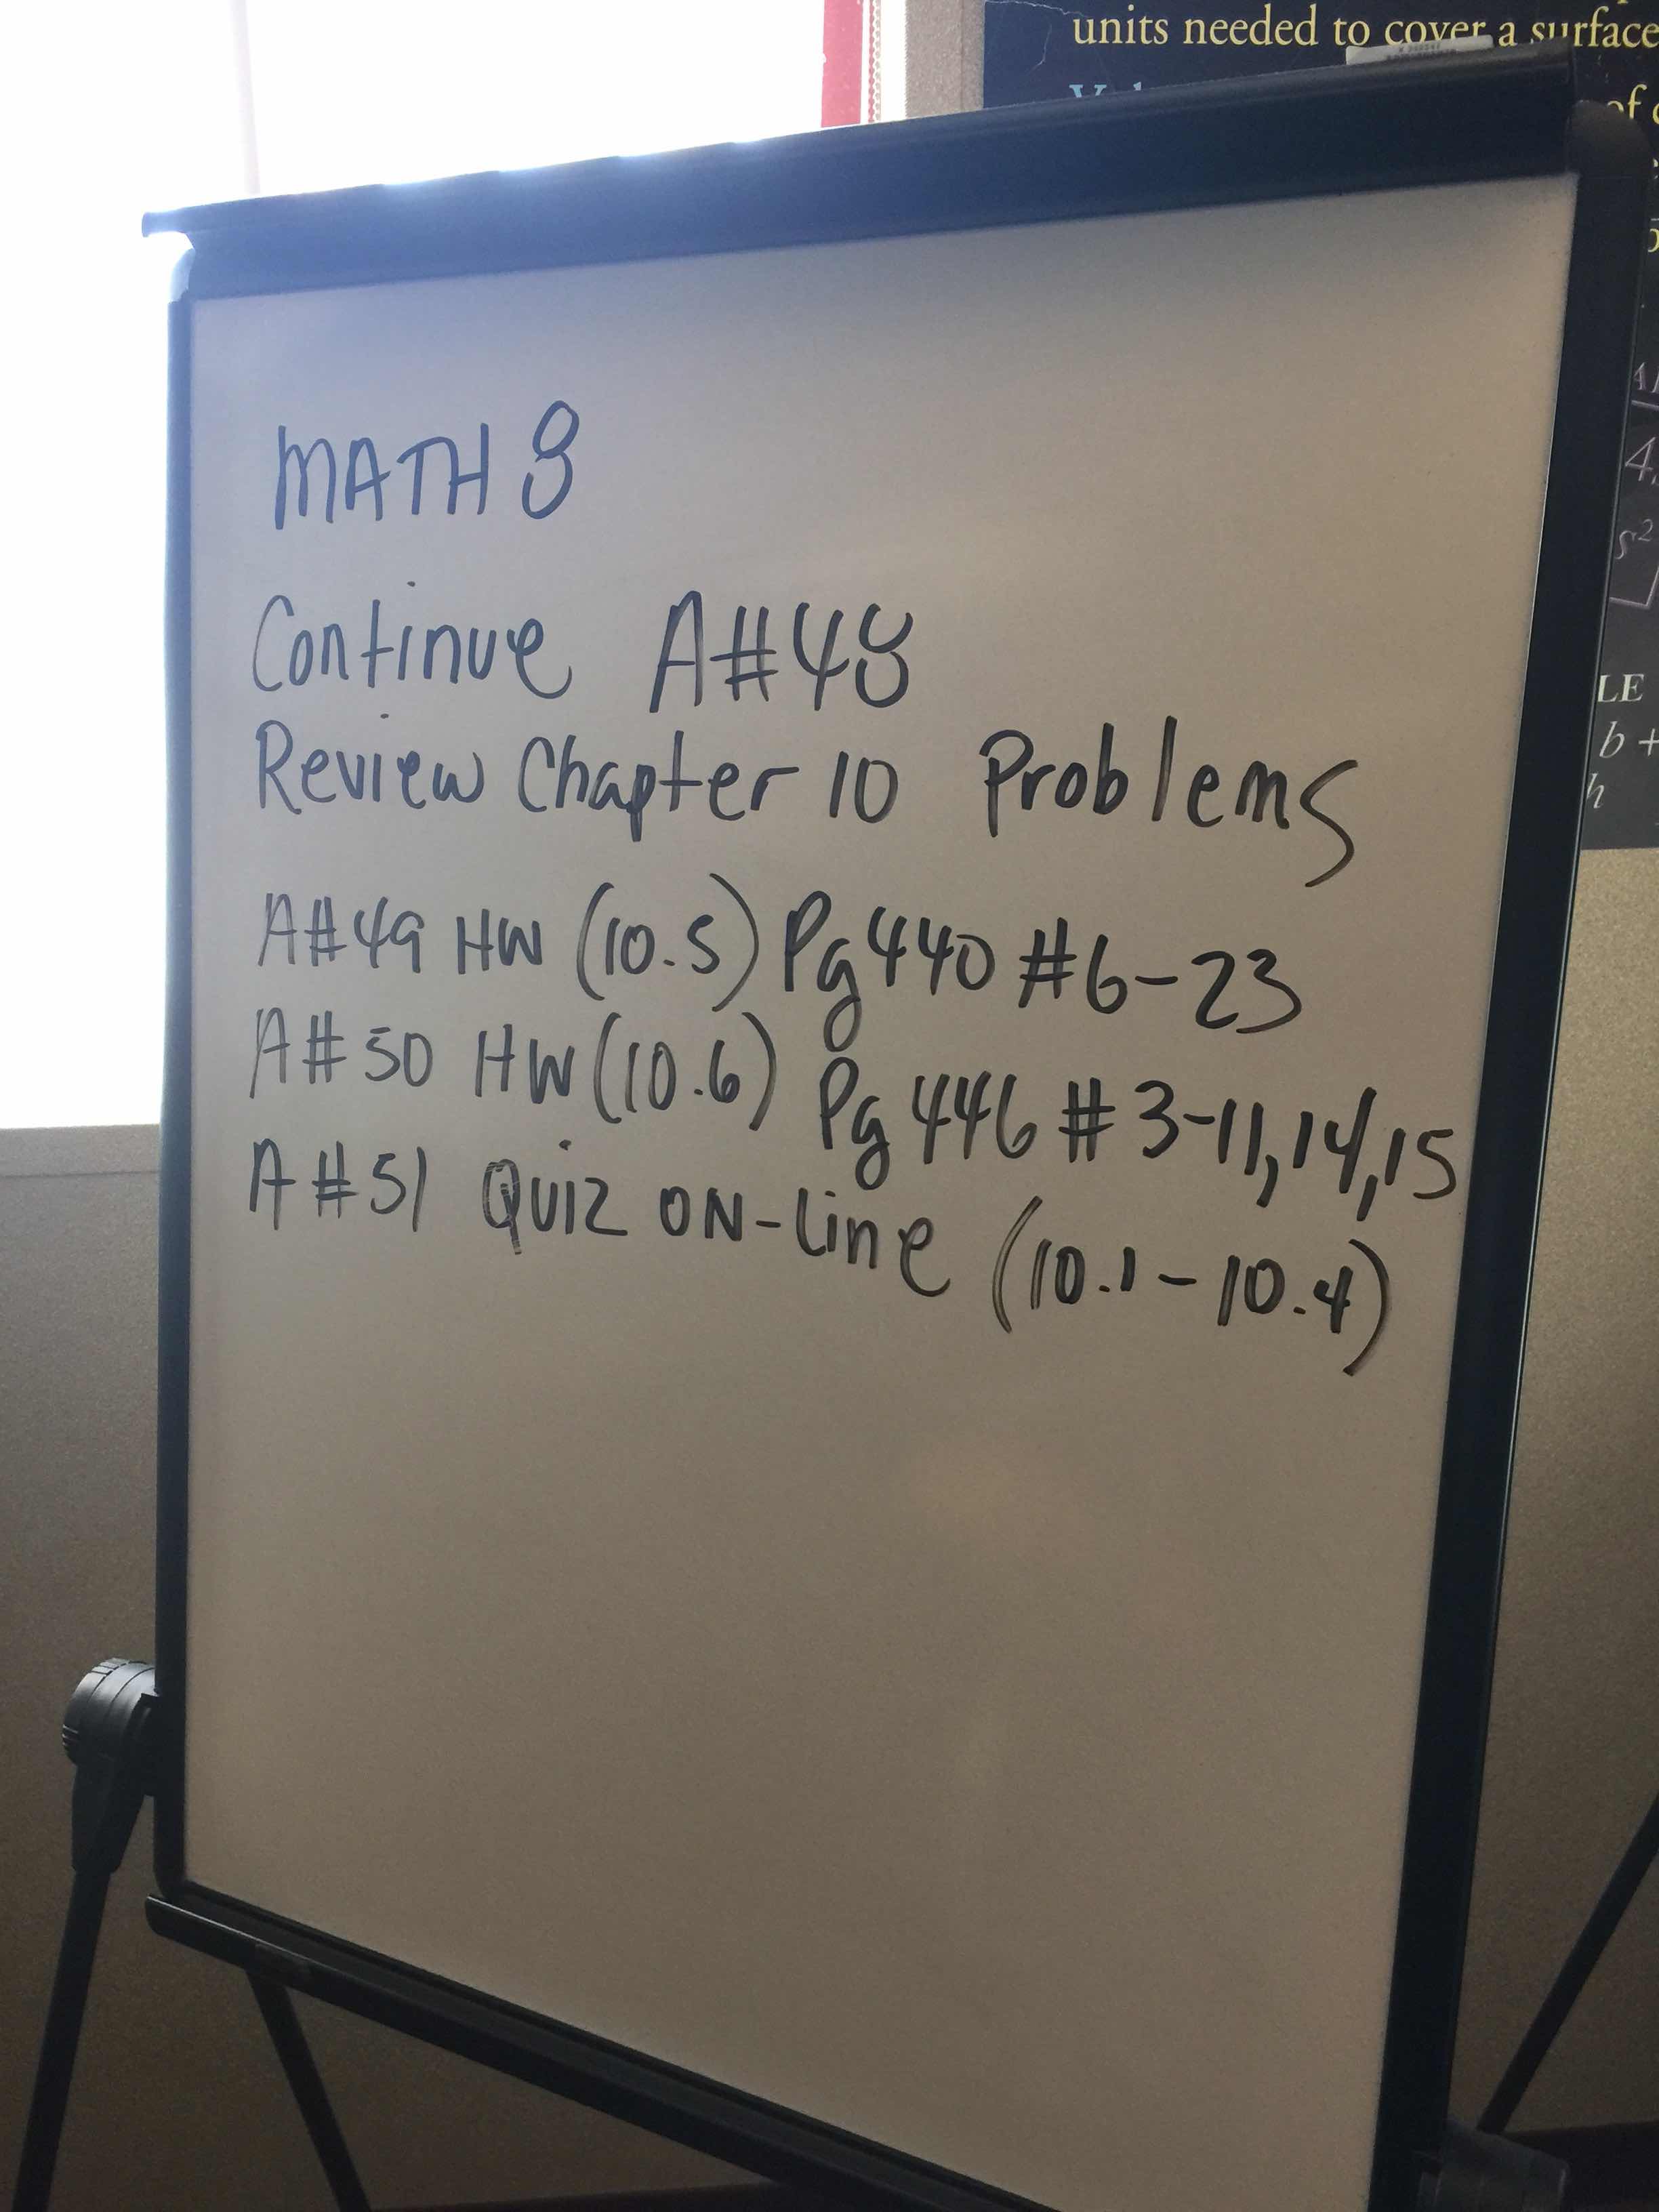 units needed to cover a surface
of
MATH 8
Continue A#48
Review Chapter 10 Problems
A#49 HW (10.5) Pg 440 #6-23
A#50 HW (10.6) Pg 446 #3-11,14,15
A#51 Quiz ON-Line (10.1-10.4)
4
s²
LE
b +
h